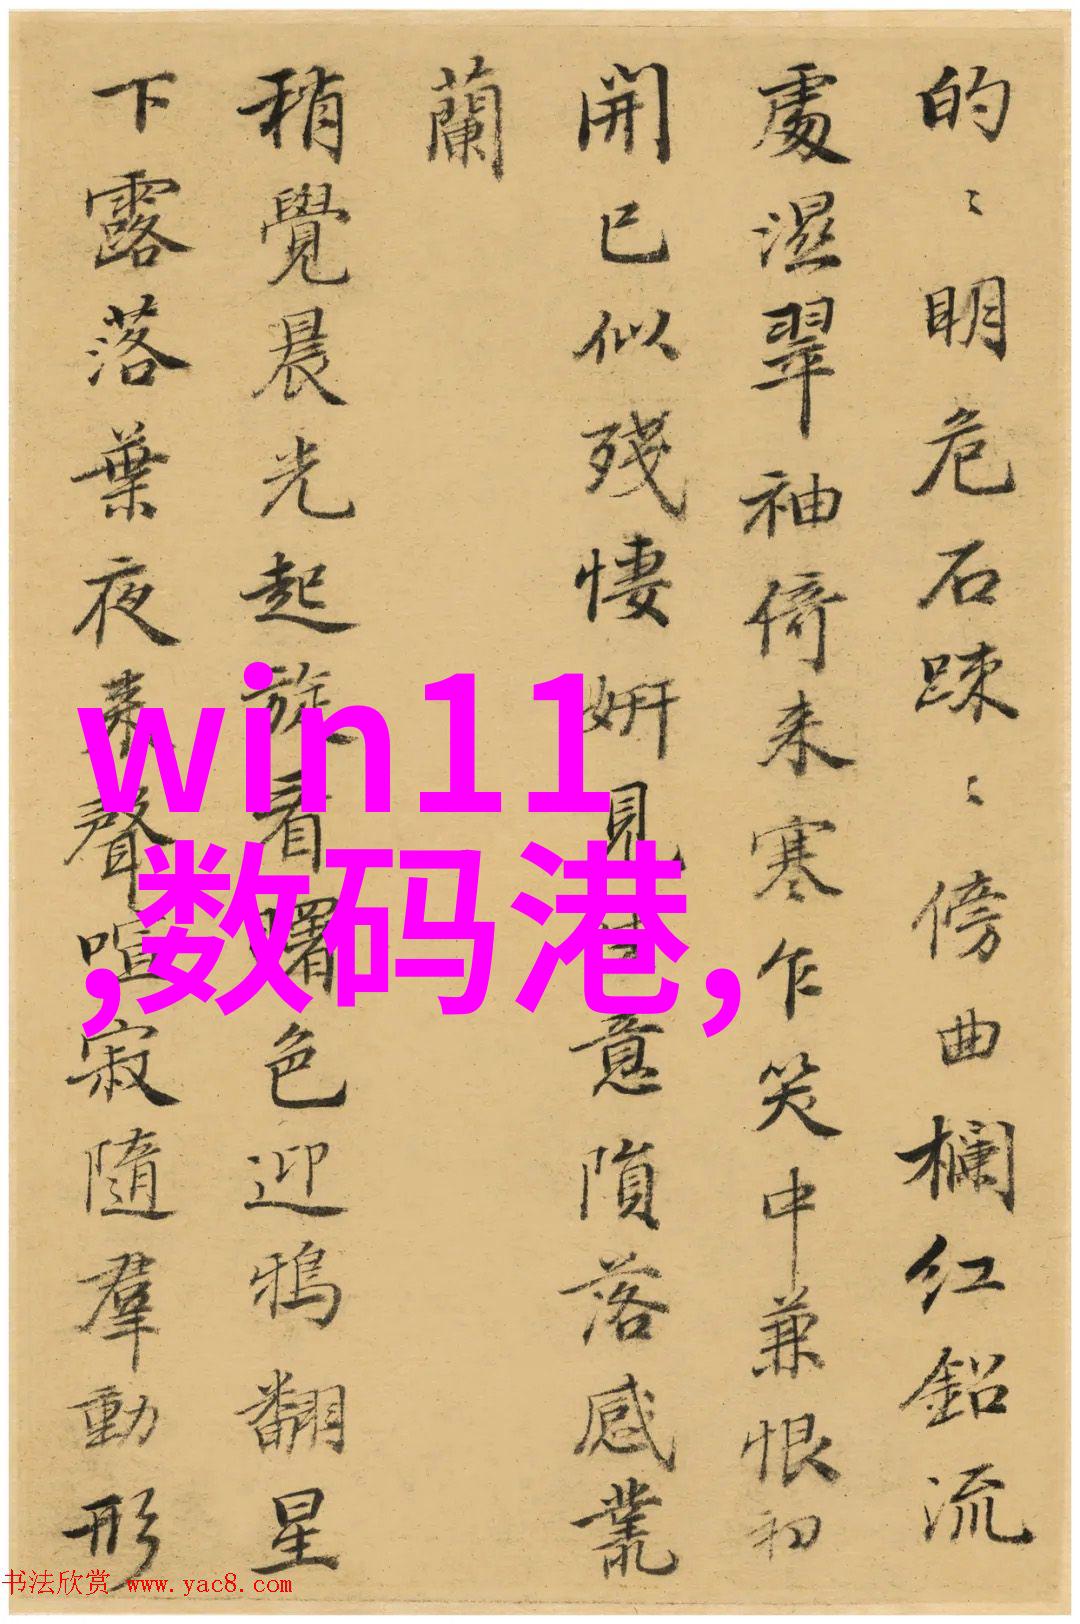 的〻明危石踈〻傍曲欄红鉛流
處濕翠袖倚来寒乍笑中兼恨初
開已似残悽妍見意隕落感叢
蘭
稍覺晨光起旋看曙色迎鴉翻星
下露落葉夜来聲喧寂隨羣動形
win11
,数码港,
书法欣赏 www.yac8.com